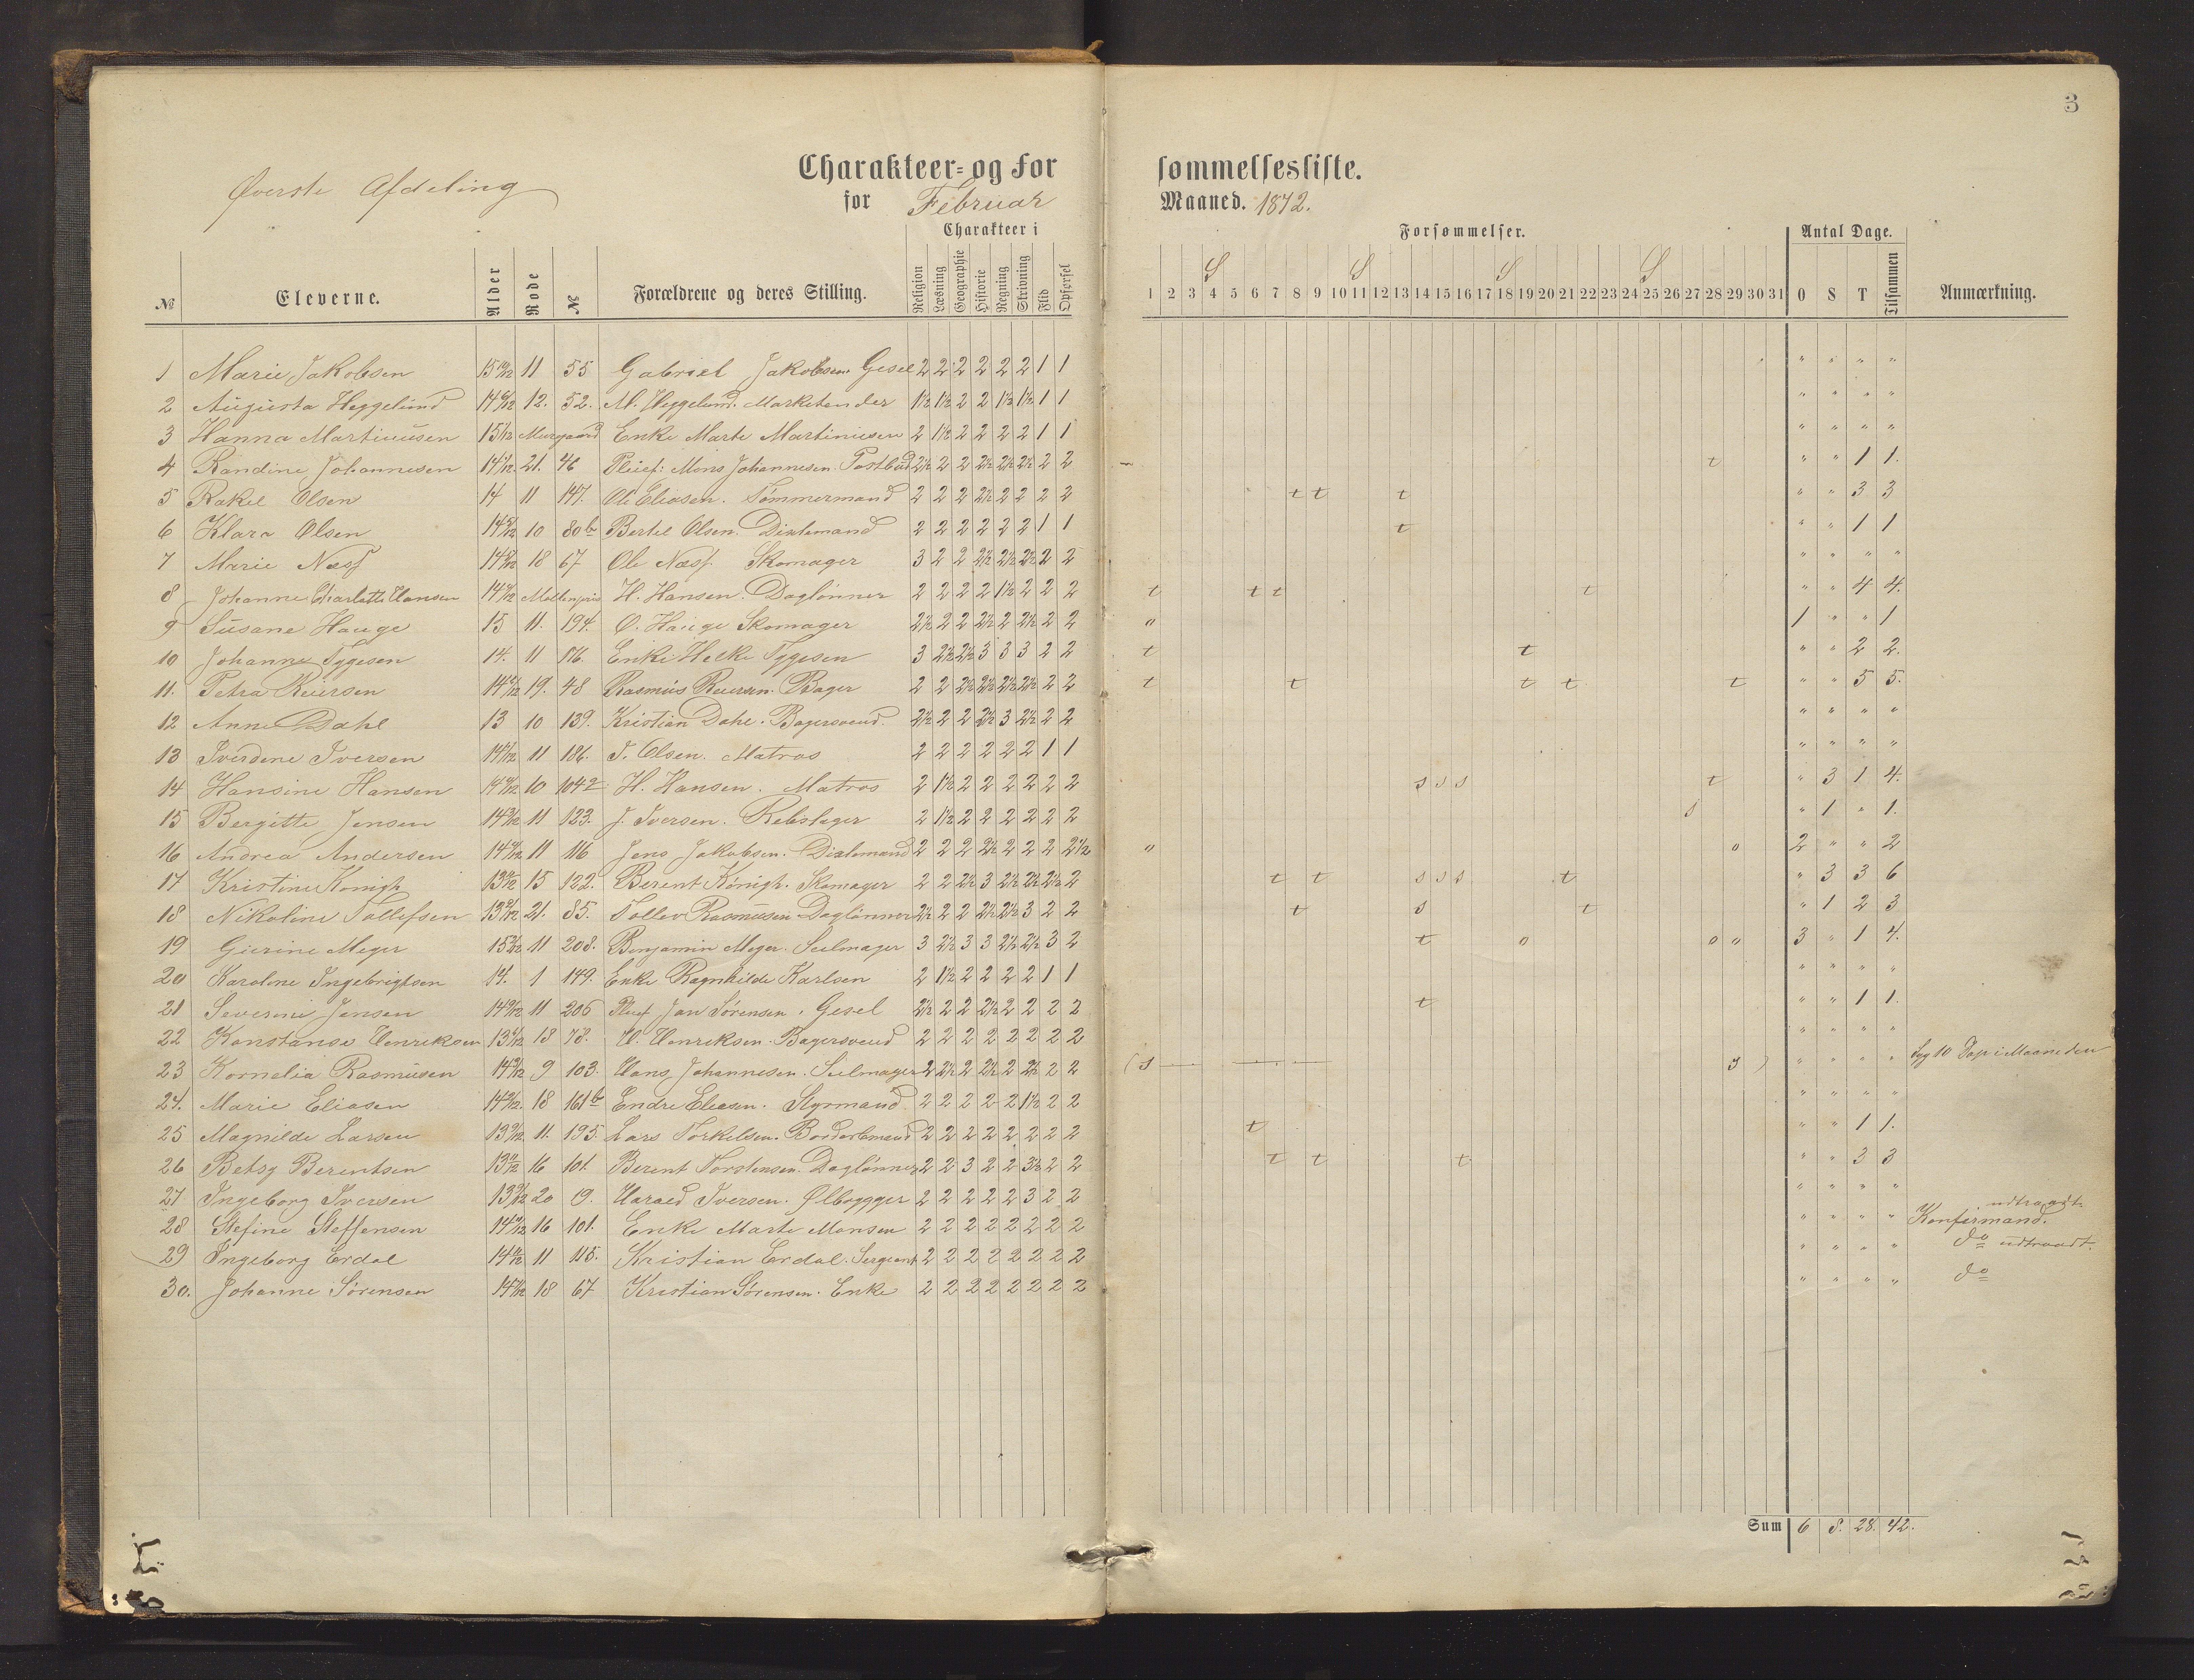 3
Øverste Afdeling
Charakteer- og Forsømmelsesliste.
for Februar Maaned. 1872.
Charakteer i Forsømmelser. Antal Dage.
S S S S
№ Eleverne. Alder Rode № Forældrene og deres Stilling. Religion Læsning Geographie Historie Regning Skrivning Flid Opførsel 1 2 3 4 5 6 7 8 9 10 11 12 13 14 15 16 17 18 19 20 21 22 23 24 25 26 27 28 29 30 31 O S T Tilsammen Anmærkning.
1 Marie Jakobsen 15 10/12 11 55 Gabriel Jakobsen Gesel 2 2 2 2 2 2 1 1 " " " "
2 Augusta Heggelund 12. 52. M. Heggelund. Marketender 1½ 1½ 2 2 1½ 1½ 1 1 " " " "
3 Hanna Martinusen 15 1/12 Murgaard Enke Marte Martinusen 2 1½ 2 2 2 2 1 1 " " " "
4 Randine Johannesen 14 1/12 21. 46 Pleief: Mons Johannesen Postbud 2½ 2 2 2½ 2½ 2½ 2 2 t " " 1 1.
5 Rakel Olsen 14 11 147. Ole Eliasen. Tømmermand 2 2 2 2½ 2 2 2 2 t t t " " 3 3
6 Klara Olsen 10 80b Bertel Olsen. Dixlemand 2 2 2 2 2 2 1 1 t " " 1 1
7 Marie Næss 18 67 Ole Næss. Skomager 3 2 2 2½ 2½ 2½ 2 2 " " " "
8 Johanne Charlotte Hansen Møllenpris H. Hansen. Daglønner 2 2 2 2 1½ 2 2 2 t t t t " " 4 4.
9 Susane Hauge 15 11. 194. O. Hauge Skomager 2½ 2 2 2½ 2 2½ 2 2 o 1 " " 1
10 Johanne Tygesen 14. 11 176. Enke Helke Tygesen 3 2½ 2½ 3 3 3 2 2 t t " " 2 2.
11. Petra Reiersen 19. 48 Rasmus Reiersen. Bager 2 2 2½ 2½ 2½ 2½ 2 2 t t t t t " " 5 5.
12 Anne Dahl 13 10 139. Kristian Dahl. Bagersvend. 2½ 2 2 2½ 3 2½ 2 2 " " " "
13 Iverdine Iversen 11 186. I. Olsen. Matros 2 2 2 2 2 2 1 1 " " " "
14 Hansine Hansen 10 104a H. Hansen. Matros 2 1½ 2 2 2 2 2 2 s s s t " 3 1 4.
15 Bergitte Jensen 11 123. J. Iversen. Rebslager 2 1½ 2 2 2 2 2 2 s " 1 " 1.
16 Andrea Andersen 11 116 Jens Jakobsen. Dixlemand 2 2 2 2½ 2 2 2 2½ o o 2 " " 2
17 Kristine Königh 15 122. Berent Königh. Skomager 2 2 2½ 3 2½ 2½ 2½ 2 t t s s s t " 3 3 6
18 Nikoline Tollefsen 21. 85. Tollev Rasmusen Daglønner 2½ 2 2 2½ 2½ 3 2 2 t s t " 1 2 3
19 Gierine Meyer 11 208. Benjamin Meyer. Seilmager 3 2½ 3 3 2½ 2½ 3 2 t o o o 3 " 1 4.
20 Karoline Ingebrigtsen 14. 1 149. Enke Ragnhilde Karlsen 2 1½ 2 2 2 2 1 1 " " " "
21 Severine Jensen 11 206 Pleief Jan Sørensen. Gesel 2½ 2 2 2½ 2 2 2 2 t " " 1 1.
22 Konstanse Henriksen 18 78. H. Henriksen. Bagersvend 2 2 2 2 2 2 2 2 " " " "
23 Kornelia Rasmusen 9 103. Hans Johannesen. Seilmager 2 2½ 2 2½ 2 2½ 2 2 (s s) " " " " Syg 10 Dage i Maaneden
24. Marie Eliasen 18 161b Endre Eliasen. Styrmand 2 2 2 2 2 1½ 2 2 " " " "
25 Magnilde Larsen 11. 195. Lars Torkelsen. 2 2 2 2 2 2 2 2 t " " 1 1.
26 Betsy Berentsen 16 101. Berent Torstensen. Daglønner 2 2 3 2 2 3½ 2 2 t t t " " 3 3
27 Ingeborg Iversen 20 9. Harald Iversen. Ølbrygger 2 2 2 2 2 3 2 2 " " " "
28 Stefine Steffensen 16 101. Enke Marte Monsen 2 2 2 2 2 2 2 2 " " " " Konfirmand. udtraadt
29 Ingeborg Erdal 11 115. Kristian Erdal. Sergeant 2 2 2 2 2 2 2 2 " " " " do udtraadt.
30. Johanne Sørensen 18 67 Kristian Sørensen. Enke 2 2 2 2 2 2 2 2 " " " " do
Sum 6 8. 28. 42.